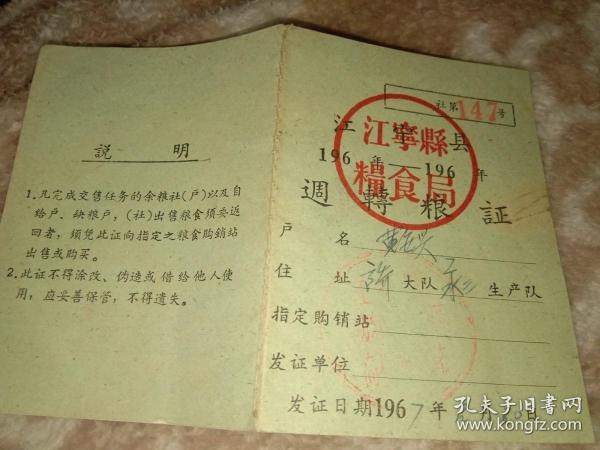 說 明
1.凡完成交售任务的余粮社(户)以及自
给户、缺粮户,(社)出售粮食须要返
回者,须凭此证向指定之粮食购销站
出售或购买。
2.此证不得涂改、伪造或借给他人使
用,应妥善保管,不得遗失。
社第147号
江宁县
江寧縣
糧食局
196 年—196 年
週轉粮証
户 名
住 址 許 大队 生产队
指定购销站
发证单位
发证日期1967年 月 日
孔夫子旧书网
www.kongfz.com